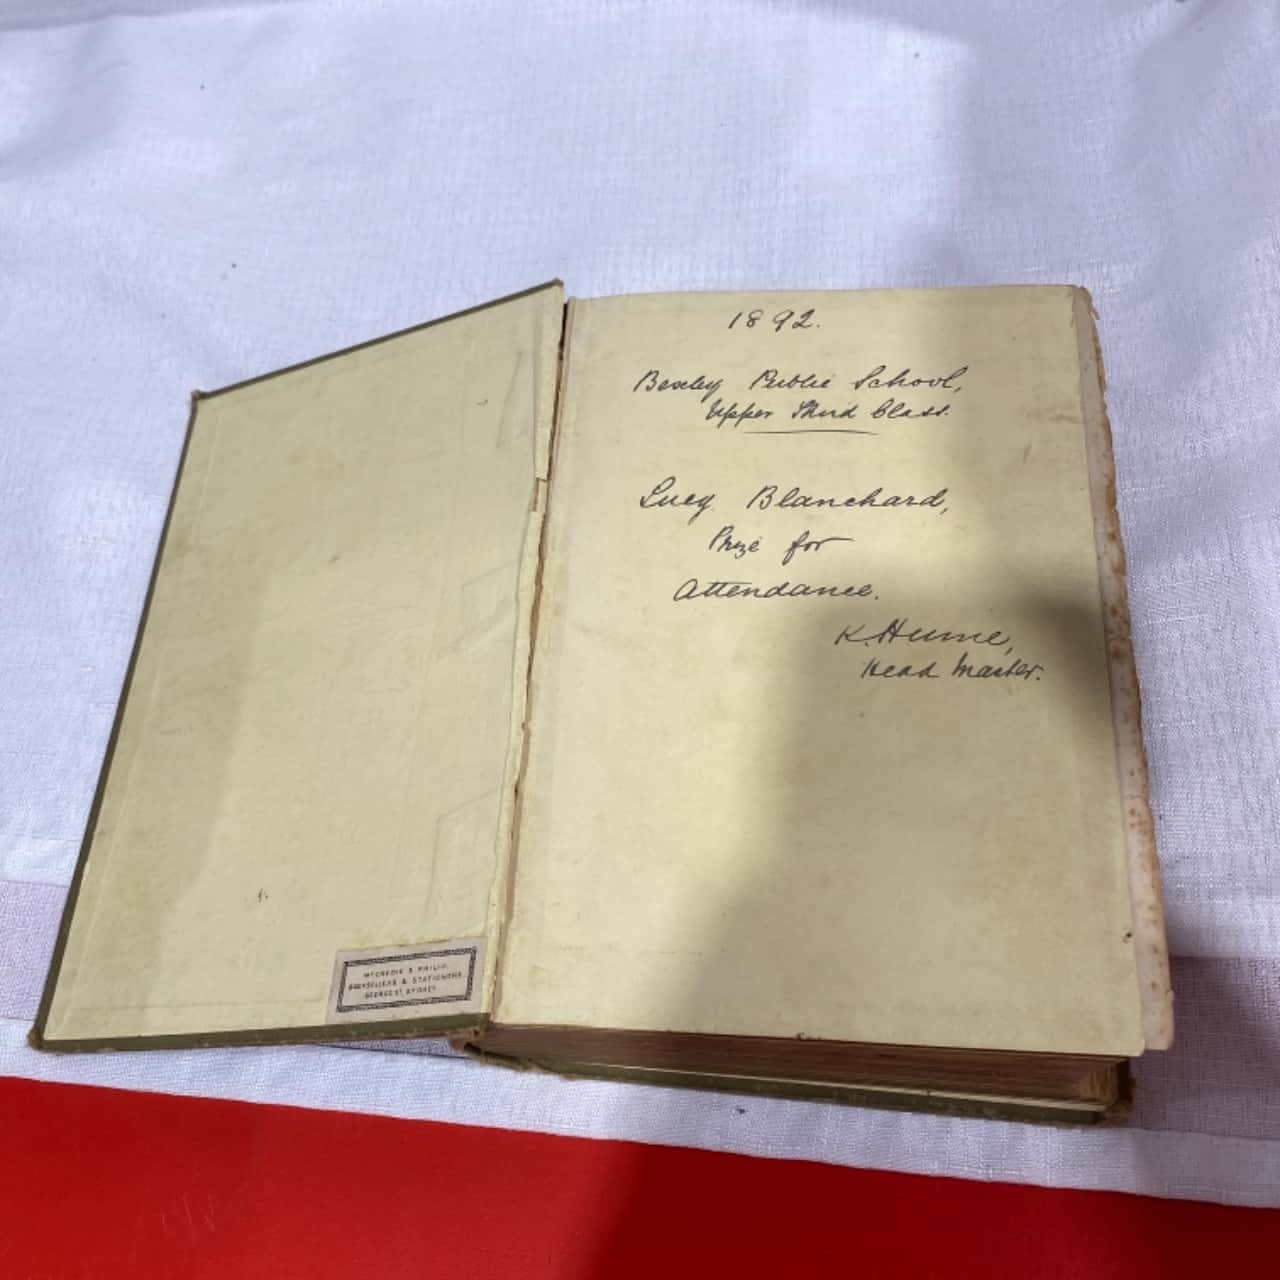 1892.
Bexley Public School,
Upper Third Class.
Lucy Blanchard,
Prize for
Attendance.
K. Hume,
Head Master.
McCREDIE & PHILIP,
BOOKSELLERS & STATIONERS
GEORGE ST. SYDNEY.